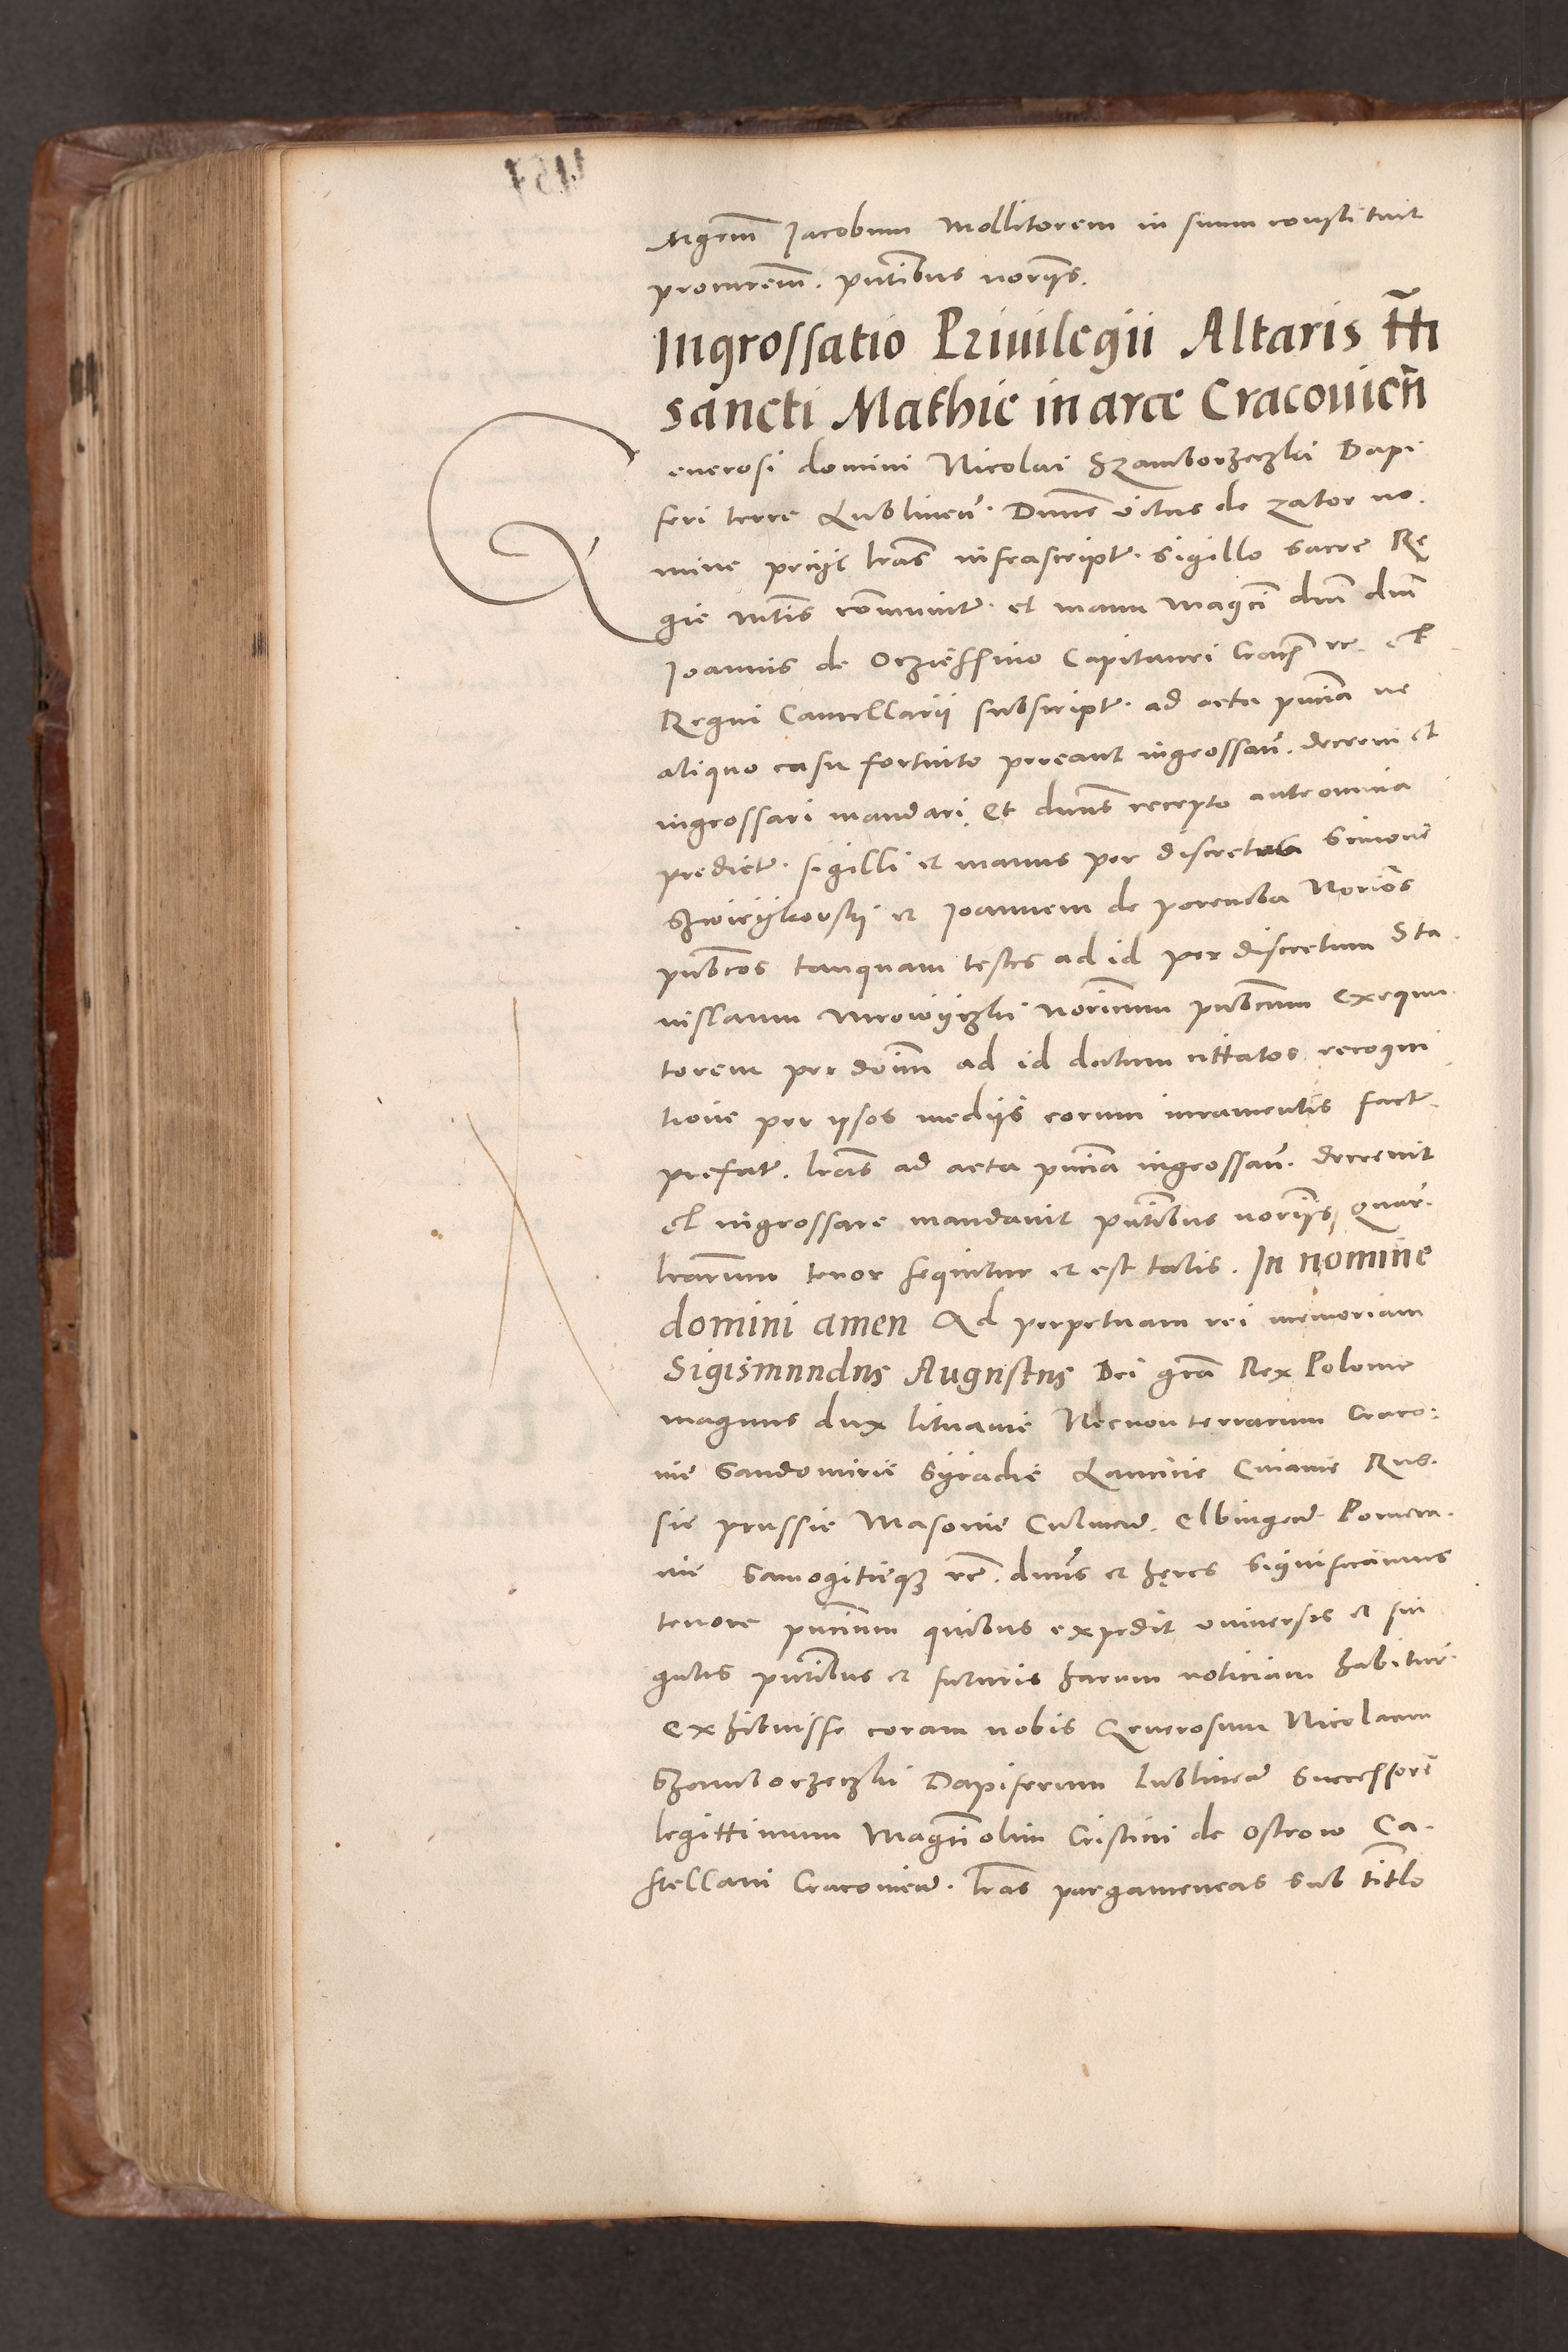 Mgrum Jacobum Mollitorem in suum constituit
procurem. pntibus noriis.
Ingrossatio Privilegii Altaris tt
sancti Mathie in arce Cracovien
Generosi domini Nicolai Szamborzeczki Dapi
feri terre Lublinen. Dnus Vitus de Zator no
mine lras infrascript. sigillo sacre Re
gie mtis communit. et manu Magci dni dni
Joannis de Oczieschino Capitanei Cracn et
Regni Cancellarii subscript. ad acta pncia ne
aliquo casu fortuito pereant ingrossan. decreni et
ingrossari mandari. Et dnus recepto ante omnia
predict. sigilli et manus per discretos Simone
Szwieykovskij et Joannem de Poremba Norios
publcos tanquam testes ad id per discretum Sta
nislaum Mrowijczki noricum publcum exequu
torem per dnm ad id datum cittatos recogni
tione per ipsos mediis eorum iuramentis fact.
prefat. lras ad acta pncia ingrossan. decrevit
et ingrossare mandavit pntibus noriis quar.
lrarum tenor sequitur et est talis. In nomine
domini amen Ad perpetuam rei memoriam
Sigismundus Augustus Dei gra Rex Polonie
magnus dux lituanie Necnon terrarum Craco:
vie Sandomirie Syradie Lancicie Cuiavie Rus.
sie prussie Masovie Culmen. Elbingen. Pomera.
nie Samogitieqz etc. dnus et heres Significamus
tenore pncium quibus expedit universis et sin
gulis pntibus et futuris harum noticiam habitur.
exhibuisse coram nobis Generosum Nicolaum
Szamborzeczki Dapiferum Lublinen Successore
legittimum Magci olim Cristini de Ostrow Ca.
stellani Cracovien. lras pargameneas sub titlo